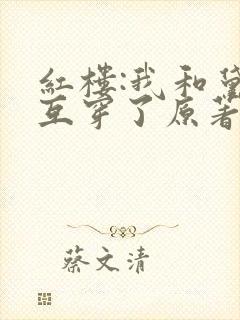 红楼:我和黛
互穿了原著
蔡文清